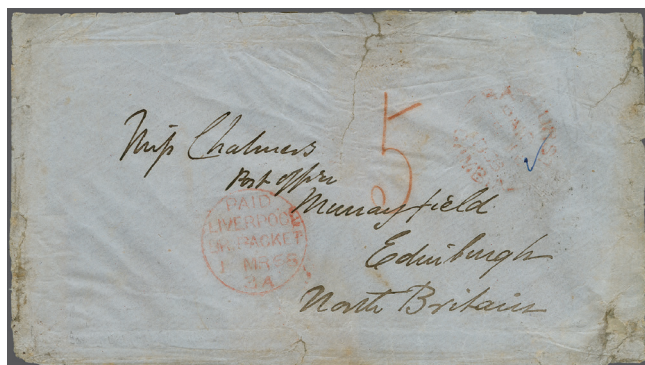 5
Miss Chalmers
Post office
Murrayfield
Edinburgh
North Britain
PAID
LIVERPOOL
BR. PACKET
MR 55
3A